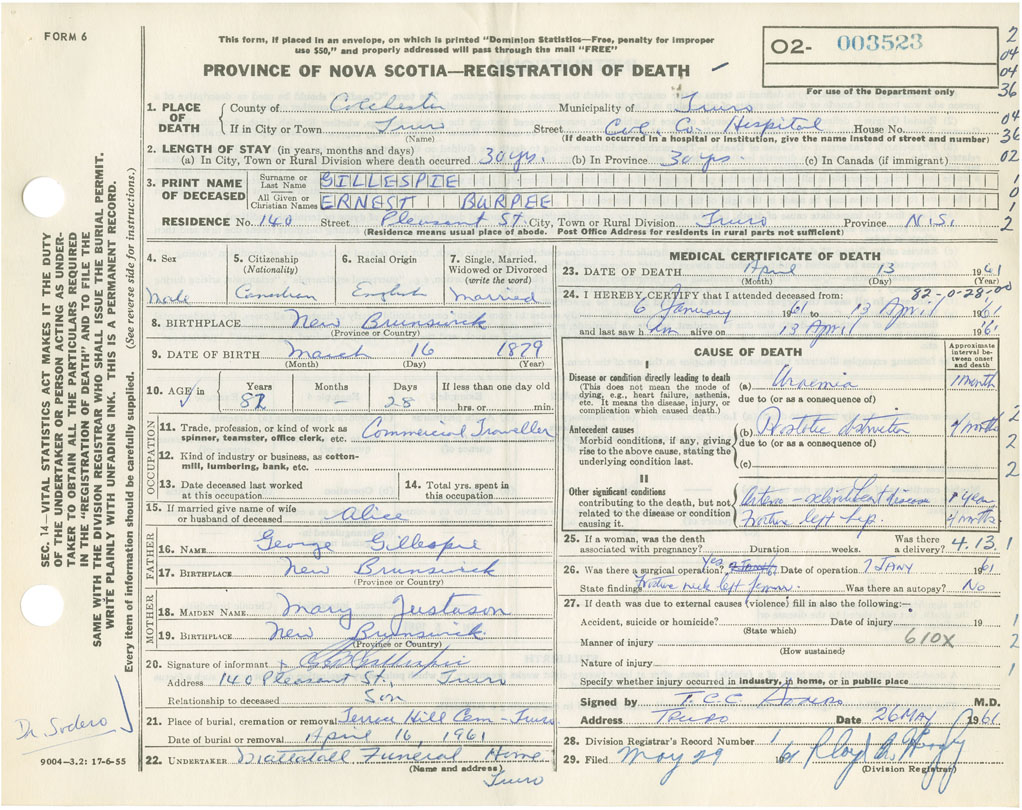 FORM 6
This form, if placed in an envelope, on which is printed "Dominion Statistics—Free, penalty for improper
use $50," and properly addressed will pass through the mail "FREE"
PROVINCE OF NOVA SCOTIA—REGISTRATION OF DEATH
02- 003523
For use of the Department only
2
04
04
36
04
36
02
1
0
1
2
SEC. 14—VITAL STATISTICS ACT MAKES IT THE DUTY
OF THE UNDERTAKER OR PERSON ACTING AS UNDER-
TAKER TO OBTAIN ALL THE PARTICULARS REQUIRED
IN THE "REGISTRATION OF DEATH" AND TO FILE THE
SAME WITH THE DIVISION REGISTRAR WHO SHALL ISSUE THE BURIAL PERMIT.
WRITE PLAINLY WITH UNFADING INK. THIS IS A PERMANENT RECORD.
Every item of information should be carefully supplied. (See reverse side for instructions.)
1. PLACE OF DEATH
County of Colchester Municipality of Truro
If in City or Town Truro Street Col. Co. Hospital House No.
(Name) (If death occurred in a hospital or institution, give the name instead of street and number)
2. LENGTH OF STAY (in years, months and days)
(a) In City, Town or Rural Division where death occurred 30 yrs. (b) In Province 30 yrs. (c) In Canada (if immigrant)
3. PRINT NAME OF DECEASED
Surname or Last Name GILLESPIE
All Given or Christian Names ERNEST BURPEE
RESIDENCE No. 140 Street Pleasant St. City, Town or Rural Division Truro Province N.S.
(Residence means usual place of abode. Post Office Address for residents in rural parts not sufficient)
4. Sex
Male
5. Citizenship (Nationality)
Canadian
6. Racial Origin
English
7. Single, Married, Widowed or Divorced (write the word)
married
8. BIRTHPLACE New Brunswick
(Province or Country)
9. DATE OF BIRTH March 16 1879
(Month) (Day) (Year)
10. AGE in Years Months Days If less than one day old
82 28 hrs. or min.
OCCUPATION
11. Trade, profession, or kind of work as spinner, teamster, office clerk, etc. Commercial Traveller
12. Kind of industry or business, as cotton-mill, lumbering, bank, etc.
13. Date deceased last worked at this occupation
14. Total yrs. spent in this occupation
15. If married give name of wife or husband of deceased Alice
FATHER
16. NAME George Gillespie
17. BIRTHPLACE New Brunswick
(Province or Country)
MOTHER
18. MAIDEN NAME Mary Justason
19. BIRTHPLACE New Brunswick
(Province or Country)
20. Signature of informant Gillespie
Address 140 Pleasant St., Truro
Relationship to deceased Son
21. Place of burial, cremation or removal Terrace Hill Cem - Truro
Date of burial or removal April 16, 1961
22. UNDERTAKER Mattatall Funeral Home
(Name and address) Truro
Dr. Sodero
9004—3.2: 17-6-55
MEDICAL CERTIFICATE OF DEATH
23. DATE OF DEATH April 13 1961
(Month) (Day) (Year)
82-0-28
24. I HEREBY CERTIFY that I attended deceased from:
6 January 1961 to 13 April 1961
and last saw him alive on 13 April 1961
CAUSE OF DEATH
Approximate interval between onset and death
I
Disease or condition directly leading to death
(This does not mean the mode of dying, e.g., heart failure, asthenia, etc. It means the disease, injury, or complication which caused death.)
(a) Uraemia 1 month
due to (or as a consequence of)
Antecedent causes
Morbid conditions, if any, giving rise to the above cause, stating the underlying condition last.
(b) Prostatic obstruction months
due to (or as a consequence of)
(c)
II
Other significant conditions
contributing to the death, but not related to the disease or condition causing it.
Arterio-sclerotic heart disease year
Fracture left hip. months
2
2
2
25. If a woman, was the death associated with pregnancy? Duration weeks. Was there a delivery? 4.13.1
26. Was there a surgical operation? Yes Date of operation 7 JANY 1961
State findings Fracture neck left femur Was there an autopsy? No
27. If death was due to external causes (violence) fill in also the following:—
Accident, suicide or homicide? Date of injury 19
(State which)
Manner of injury 610X
(How sustained)
Nature of injury
Specify whether injury occurred in industry, in home, or in public place
1
2
1
Signed by T.C.C. Sodero M.D.
Address TRURO Date 26 MAY 1961
28. Division Registrar's Record Number
29. Filed May 29
(Division Registrar)